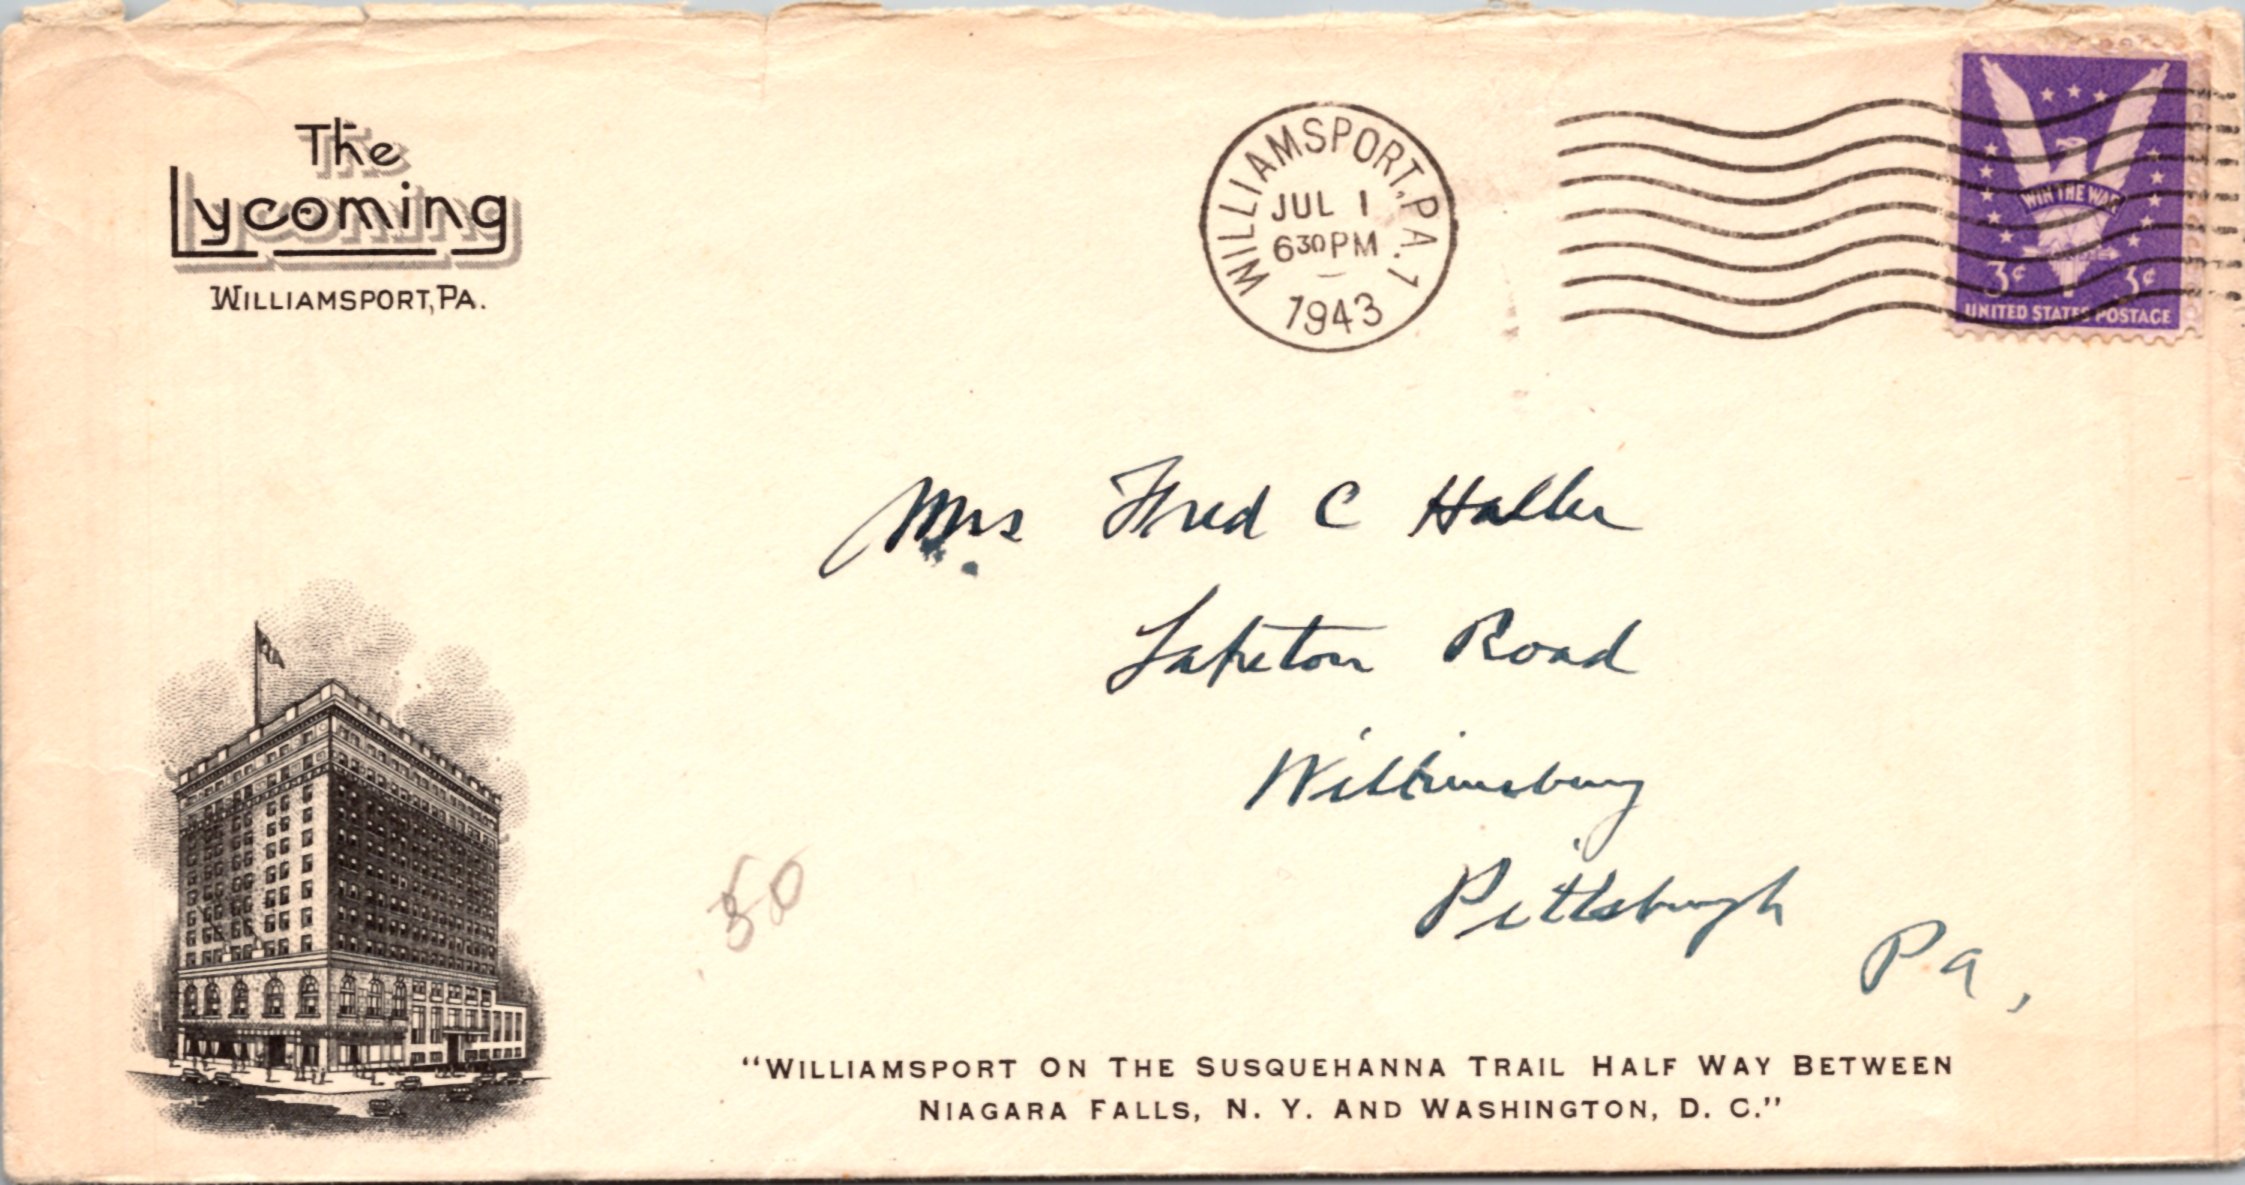 The
Lycoming
WILLIAMSPORT, PA.
WILLIAMSPORT, PA. 1
JUL 1
6 30 PM
1943
WIN THE WAR
3¢ 3¢
UNITED STATES POSTAGE
Mrs Fred C Haller
Laketon Road
Wilkinsburg
Pittsburgh
Pa,
50
"WILLIAMSPORT ON THE SUSQUEHANNA TRAIL HALF WAY BETWEEN
NIAGARA FALLS, N. Y. AND WASHINGTON, D. C."